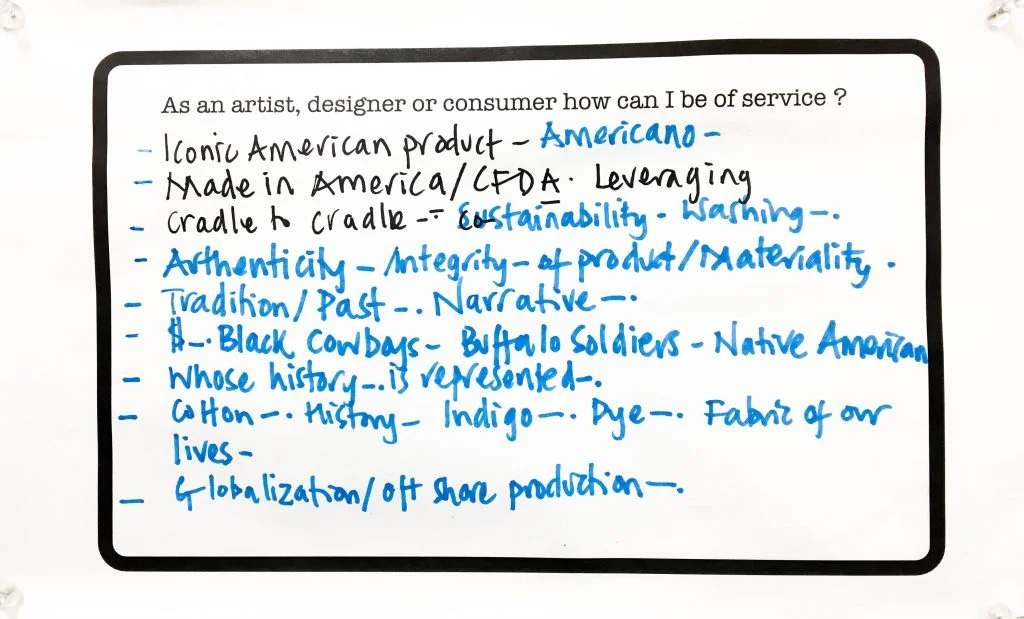 As an artist, designer or consumer how can I be of service ?
- Iconic American product - Americano -
- Made in America/CFDA. Leveraging
- Cradle to cradle -- Sustainability - Washing -.
- Authenticity - Integrity - of product/Materiality.
- Tradition/Past -. Narrative -.
- $ -. Black Cowboys - Buffalo Soldiers - Native American
- Whose history -. is represented -.
- Cotton -. History - Indigo -. Dye -. Fabric of our
lives -
- Globalization/off shore production -.